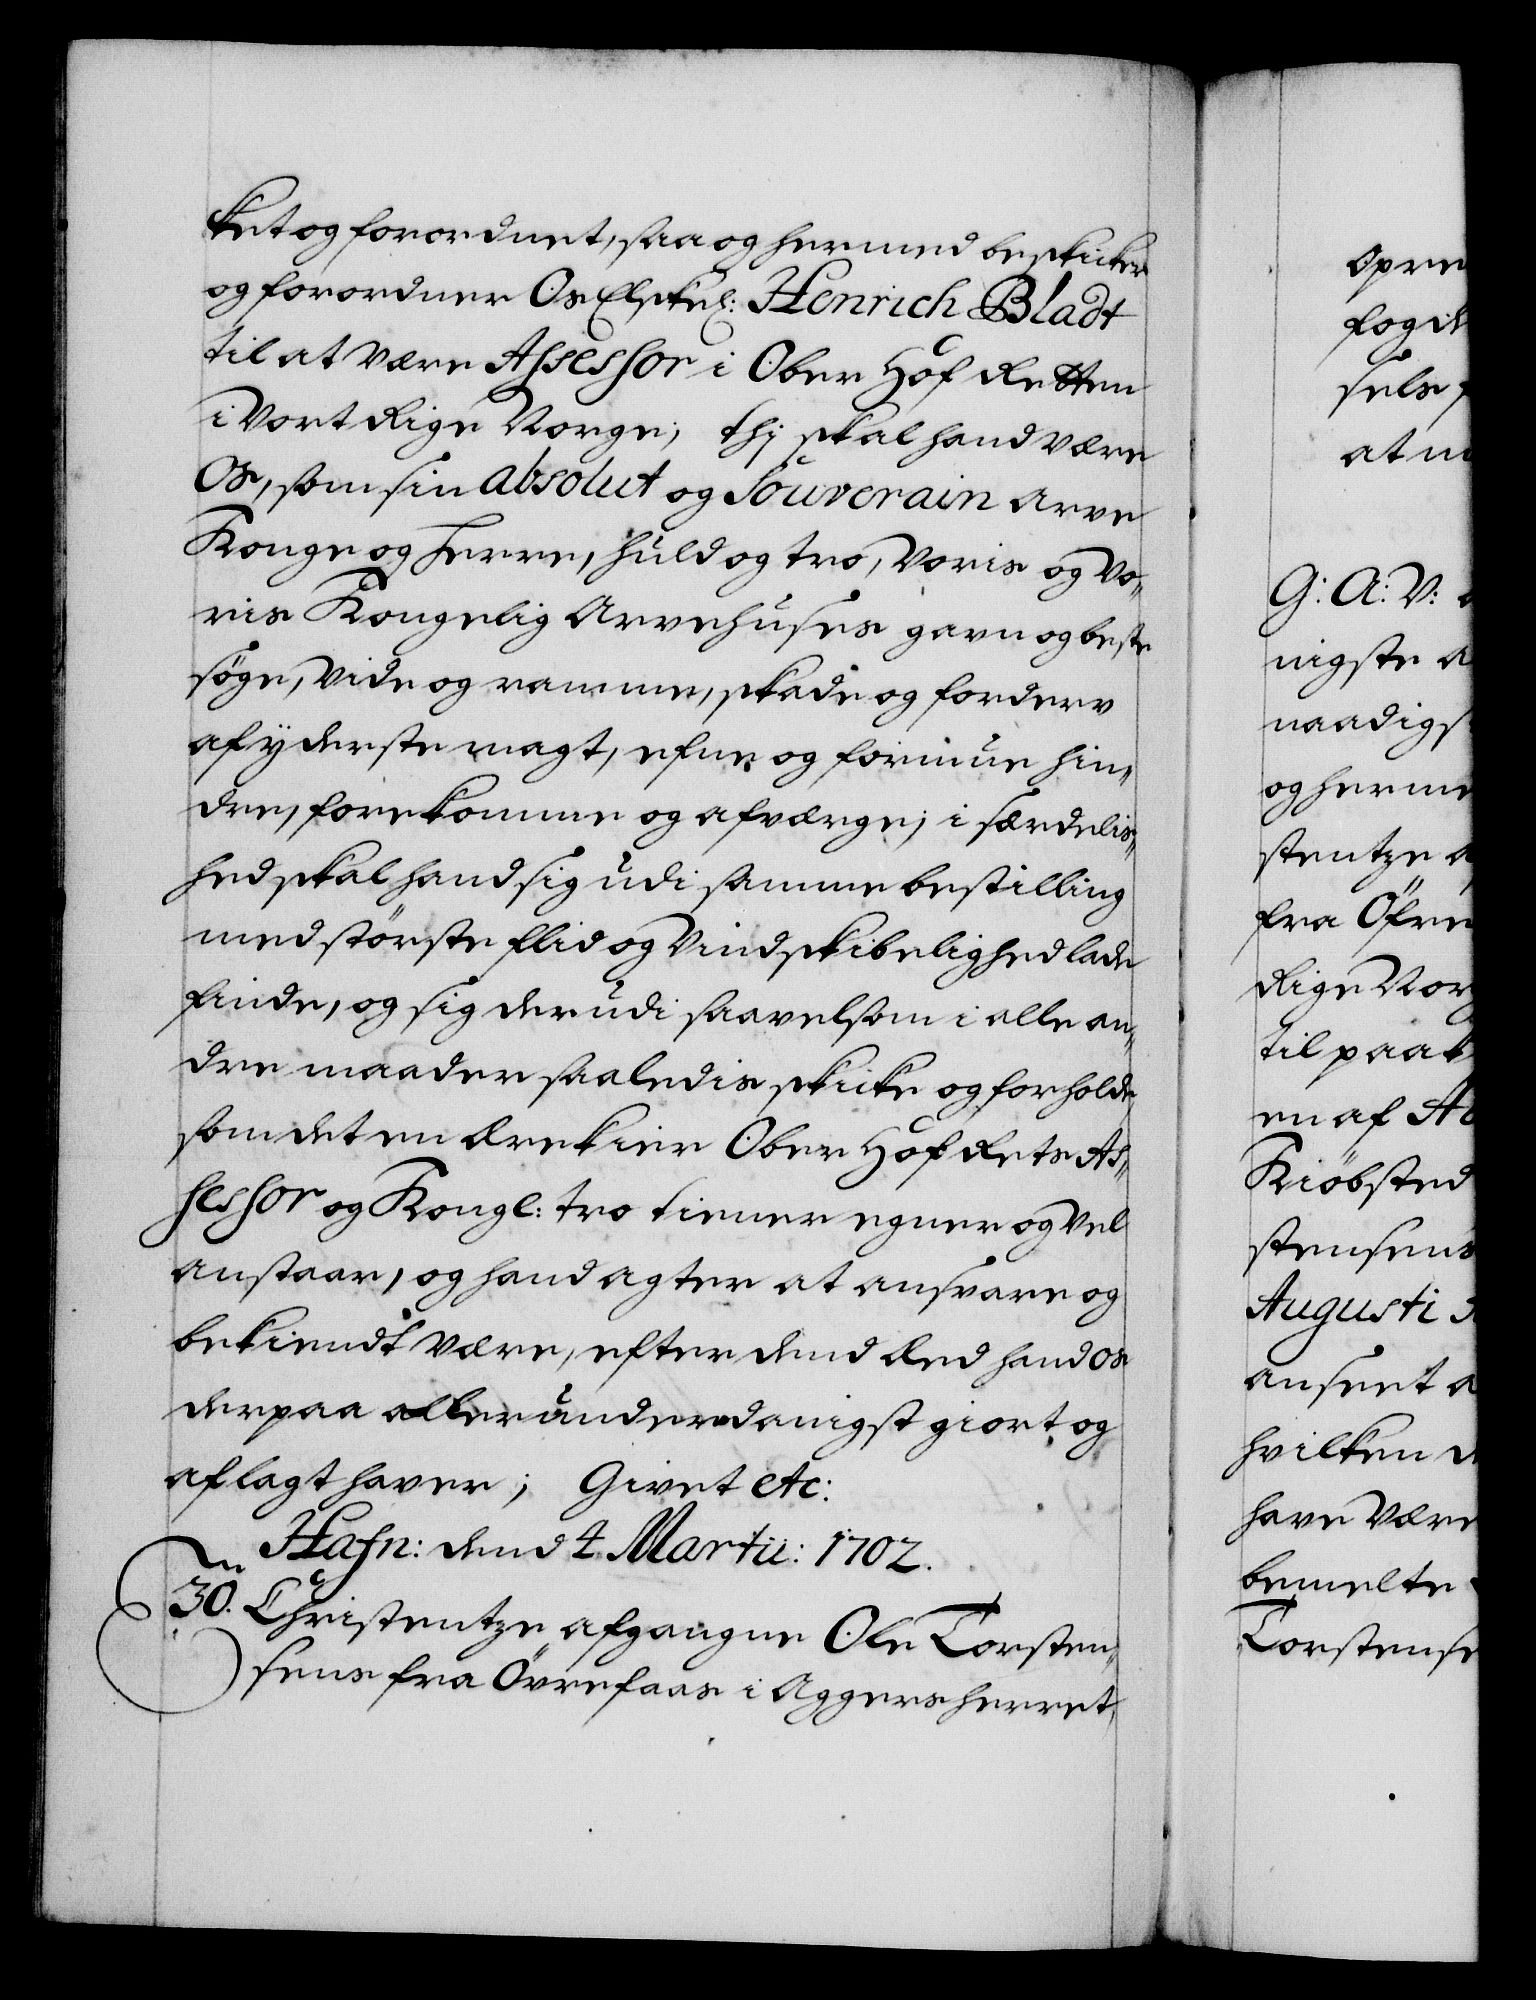 ket og forordnet, saa og hermed beskicker
og forordner Os Elskel: Henrich Bladt
til at være Assessor i Ober Hof Retten
i Vort Rige Norge; thj skal hand være
Os, som sin absolut og Souverain Arve
Konge og Herre, huld og tro, Voris og Vo„
ris Kongelig Arvehuses gavn og beste
søge, vide og ramme, skade og forderv
af yderste magt, efne og formue hin„
dre, forekomme og afværge; i særdelis„
hed skal hand sig udi samme bestilling
med største flid og Vindskibelighed lade
finde, og sig der udi saavelsom i alle an„
dre maader saaledis skicke og forholde,
som det en Ærekier Ober Hof Rets As„
sessor og Kongl: tro tiener egner og vel
anstaar, og hand agter at ansvare og
bekiendt være, efter dend Æed hand os
derpaa allerunderdanigst giort og
aflagt haver; Givet etc:
Hafn: dend 4 Martii: 1702.
30. Christentze afgangne Ole Torsten„
sens fra Øvrefaas i Aggersherret,
opre
fogde
sels
at m
G: A: V:
nigste a
naadigs
og herme
stentze a
fra Øfre
Rige Nor
til paa
en af A
Kiøbsted
stensens
Augusti
anseet a
hvilken
have være
bemelte
Torstense